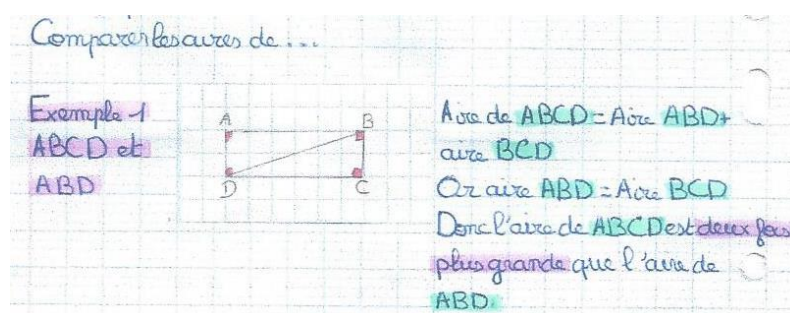 Comparer les aires de ...
Exemple 1
ABCD et
ABD
A
B
D
C
Aire de ABCD = Aire ABD +
aire BCD
Or aire ABD = Aire BCD
Donc l'aire de ABCD est deux fois
plus grande que l'aire de
ABD.